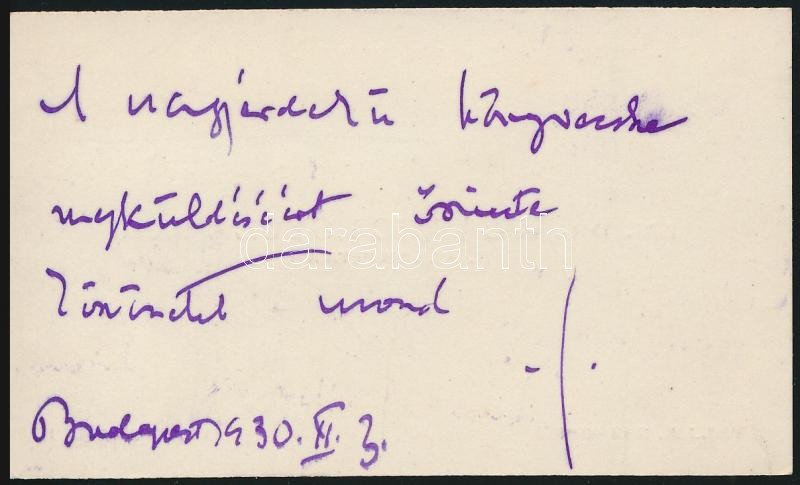 A nagyérdekű könyvecske
megküldéséért őszinte
köszönetet mond
Budapest 1930. XI. 3.
darabanth